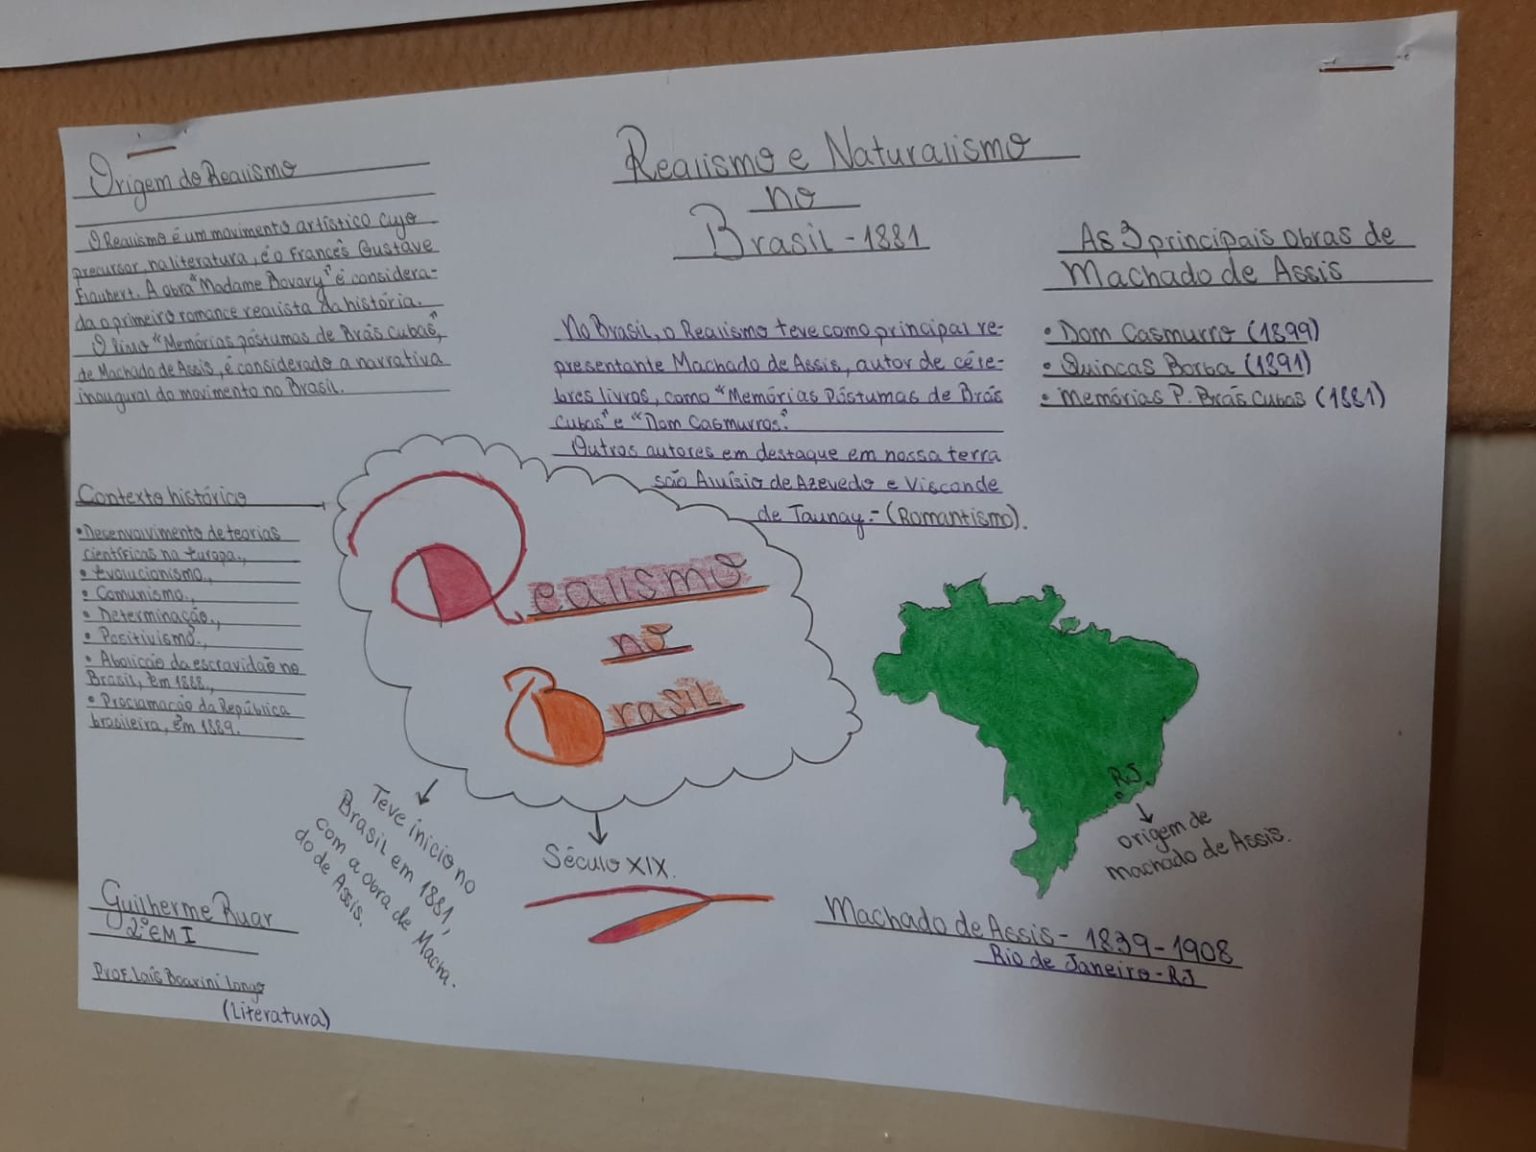 Realismo e Naturalismo
no
Brasil - 1881
Origem do Realismo
O Realismo é um movimento artístico cujo
precursor, na literatura, é o Francês Gustave
Flaubert. A obra "Madame Bovary" é considera-
da o primeiro romance realista da história.
O livro "Memórias póstumas de Brás Cubas",
de Machado de Assis, é considerado a narrativa
inaugural do movimento no Brasil.
No Brasil, o Realismo teve como principal re-
presentante Machado de Assis, autor de céle-
bres livros, como "Memórias Póstumas de Brás
Cubas" e "Dom Casmurros".
Outros autores em destaque em nossa terra
são Aluísio de Azevedo e Visconde
de Taunay. - (Romantismo).
As 3 principais obras de
Machado de Assis
• Dom Casmurro (1899)
• Quincas Borba (1891)
• Memórias P. Brás Cubas (1881)
Contexto histórico
• Desenvolvimento de teorias
científicas na Europa.,
• Evolucionismo.,
• Comunismo.,
• Determinação.,
• Positivismo.,
• Abolição da escravidão no
Brasil, em 1888.,
• Proclamação da República
brasileira, em 1889.
Realismo
no
Brasil
Teve ínicio no
Brasil em 1881,
com a obra de Macha.
do de Assis.
Século XIX.
RJ.
origem de
machado de Assis.
Machado de Assis - 1839-1908
Rio de Janeiro - RJ
Guilherme Ruar
2º EM I
Prof. Laís Boarini Longo
(Literatura)